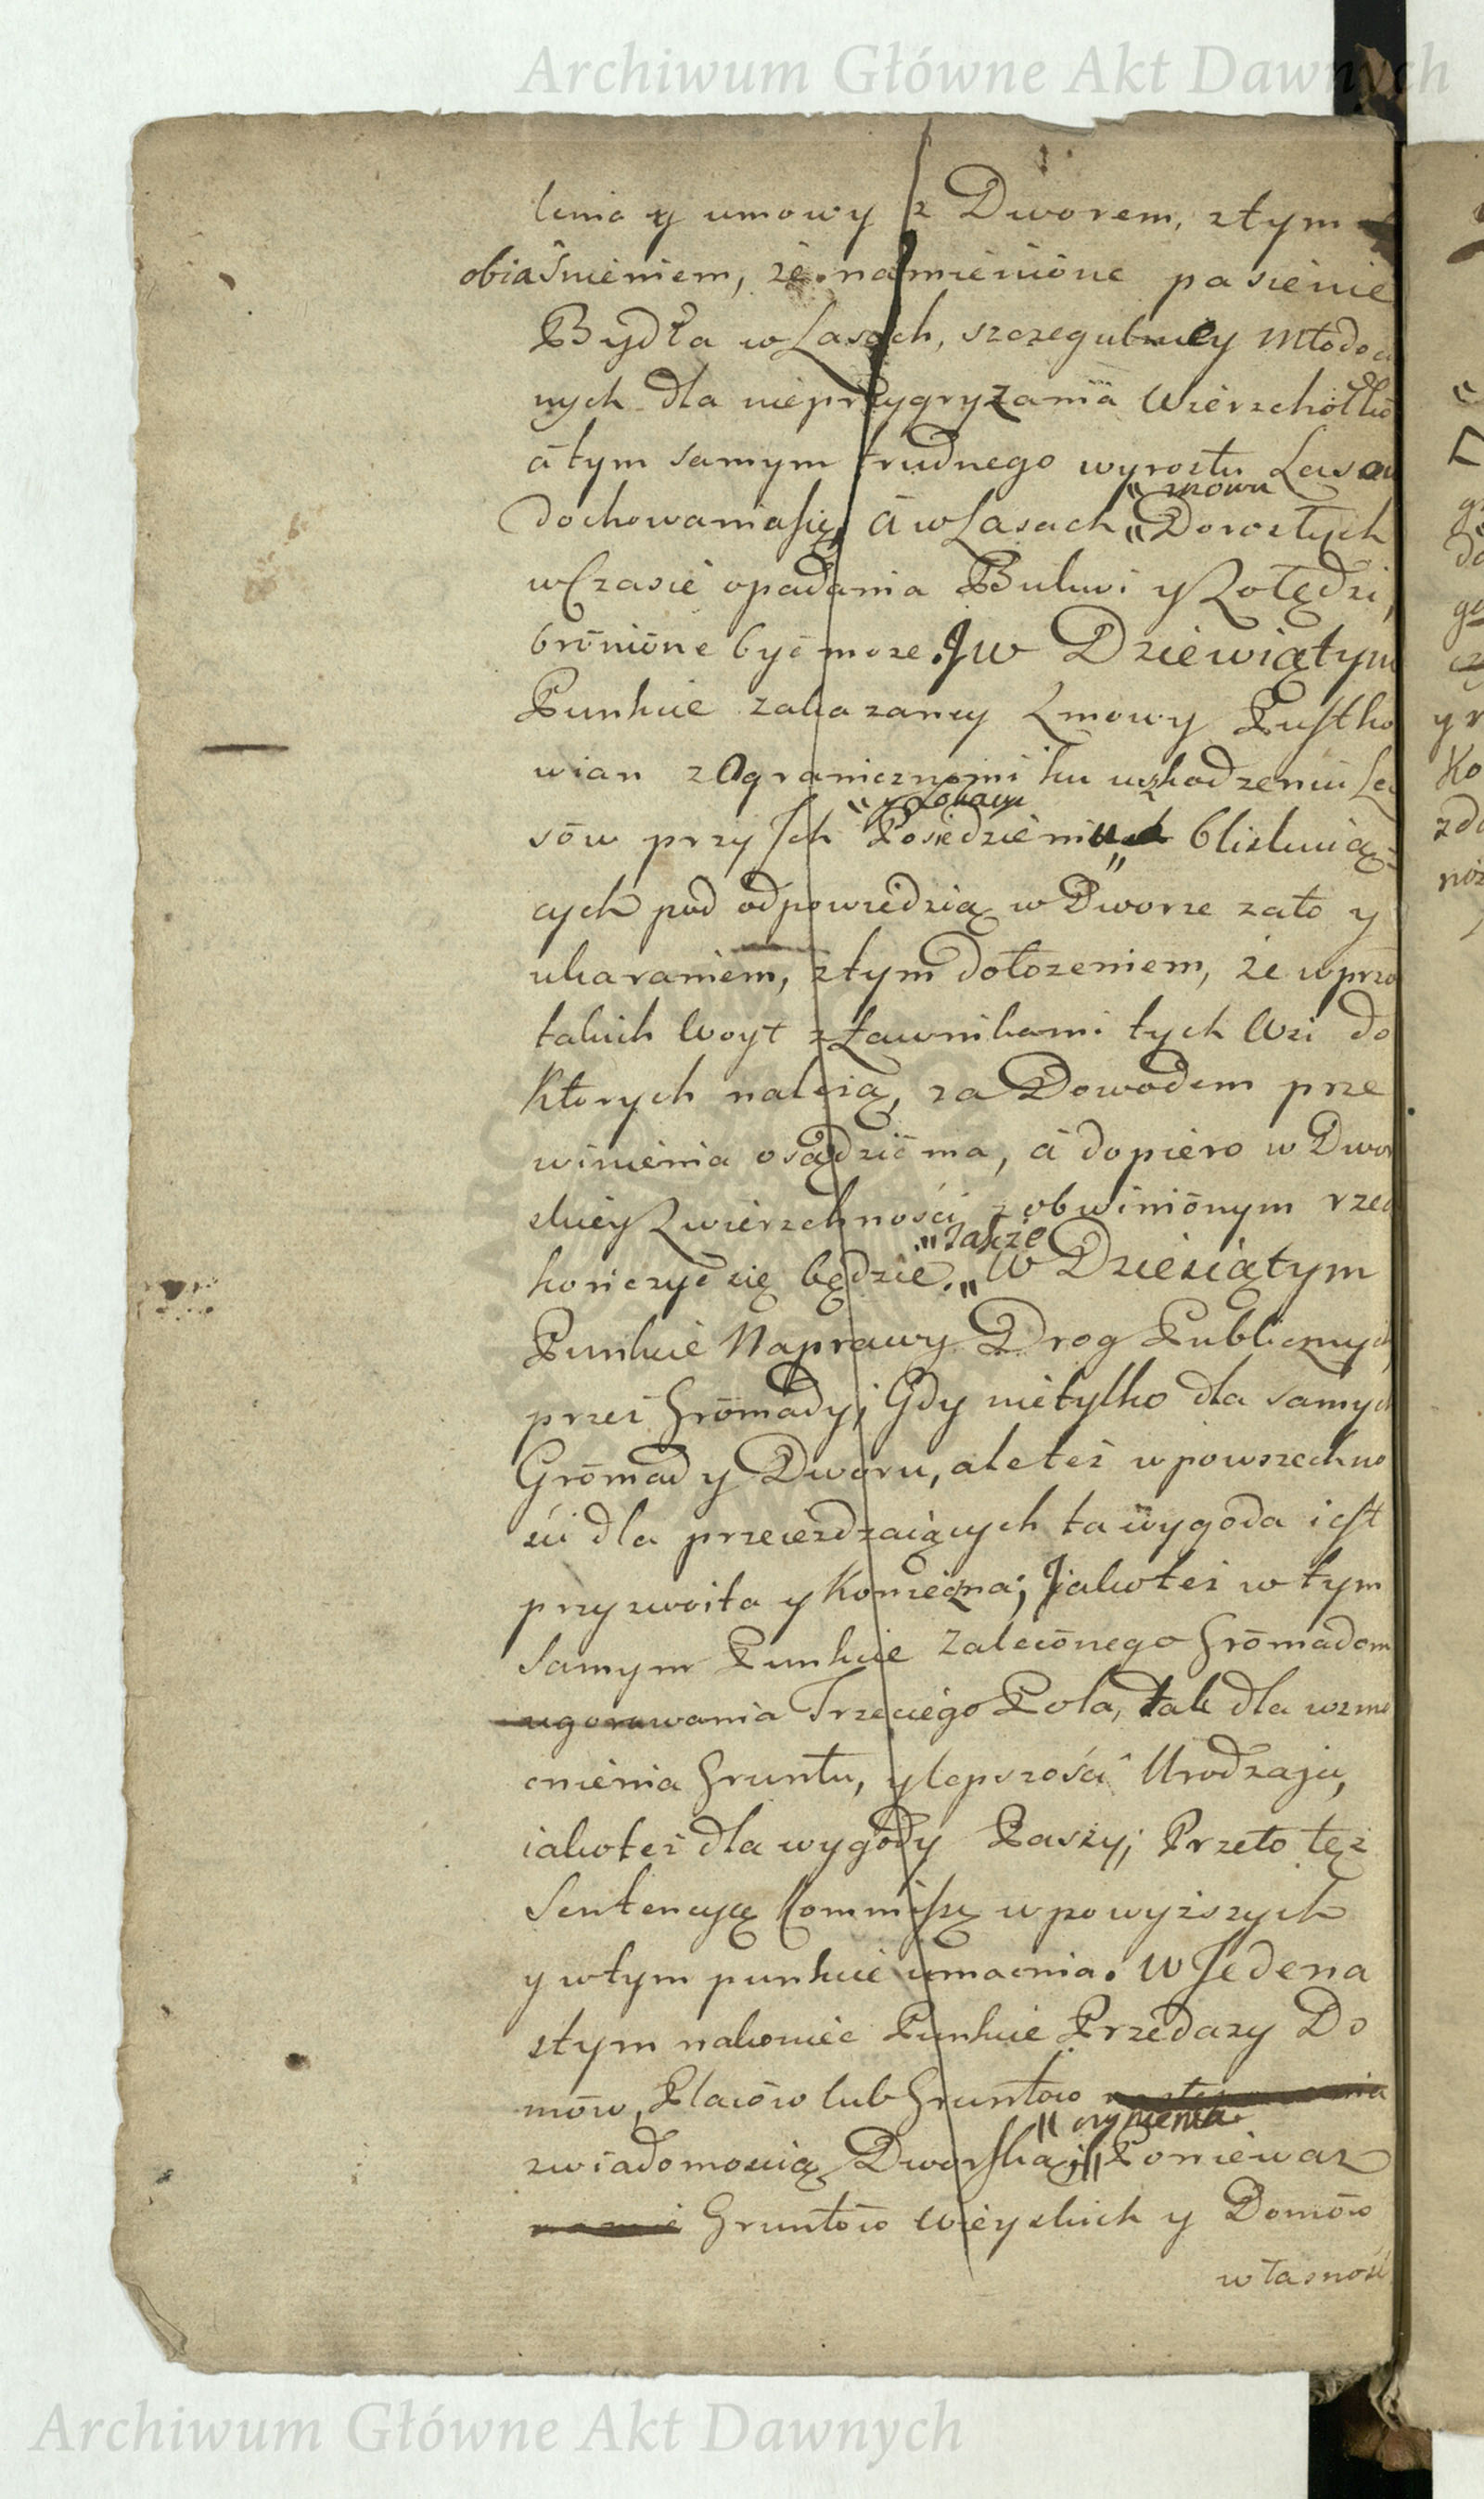 Archiwum Główne Akt Dawnych
lenia y umowy z Dworem, z tym
obiaśnieniem, że namienióne pasienie
Bydła w Lasach, szczegulniey Młodoci
nych dla nieprzygryzania Wierzchołkó
á tym samym trudnego wyrostu Lasow
dochowania się, á w Lasach „znowu
„Dorosłych
w Czasie opadania Bukwi y Żołędzi,
brónióne być może. J w Dziewiątym
Punkcie zakazaney Zmowy Pustko
wian z Ogranicznymi ku uszkodzeniu La
„y Lokacyi
sów przy Jch Posiedzeniu blizkuią-
cych pod odpowiedzią w Dworze za to y
ukaraniem, z tym dołożeniem, że wprzó
takich Woyt z Ławnikami tych Wsi do
Ktorych należą, za Dowodem prze
winienia osądzić ma, á dopiero w Dwor
skiey Zwierzchności z obwiniónym rzec
„także
kończyć się będzie. „W Dziesiątym
Punkcie Naprawy Drog Publicznych,
przez Grómady; Gdy nietylko dla samych
Grómad y Dworu, ale też w powszechno
ści dla przeiezdzaiących ta wygoda iest
przyzwoita y Konieczna; Jako też w tym
samym Punkcie Zalecónego Grómadom
ugorowania Trzeciego Pola, tak dla wzmo
cnienia Gruntu, y lepszości Urodzaju,
iako też dla wygody Paszy; Przeto też
Sentencyę Commissyi w powyższych
y w tym punkcie umacnia. W Jedena
stym nakoniec Punkcie Przedaży Do
mów, Placów lub Gruntów
„czynienia
z wiadomością Dworską; „Ponieważ
Gruntów Wieyskich y Domów
własność
Archiwum Główne Akt Dawnych